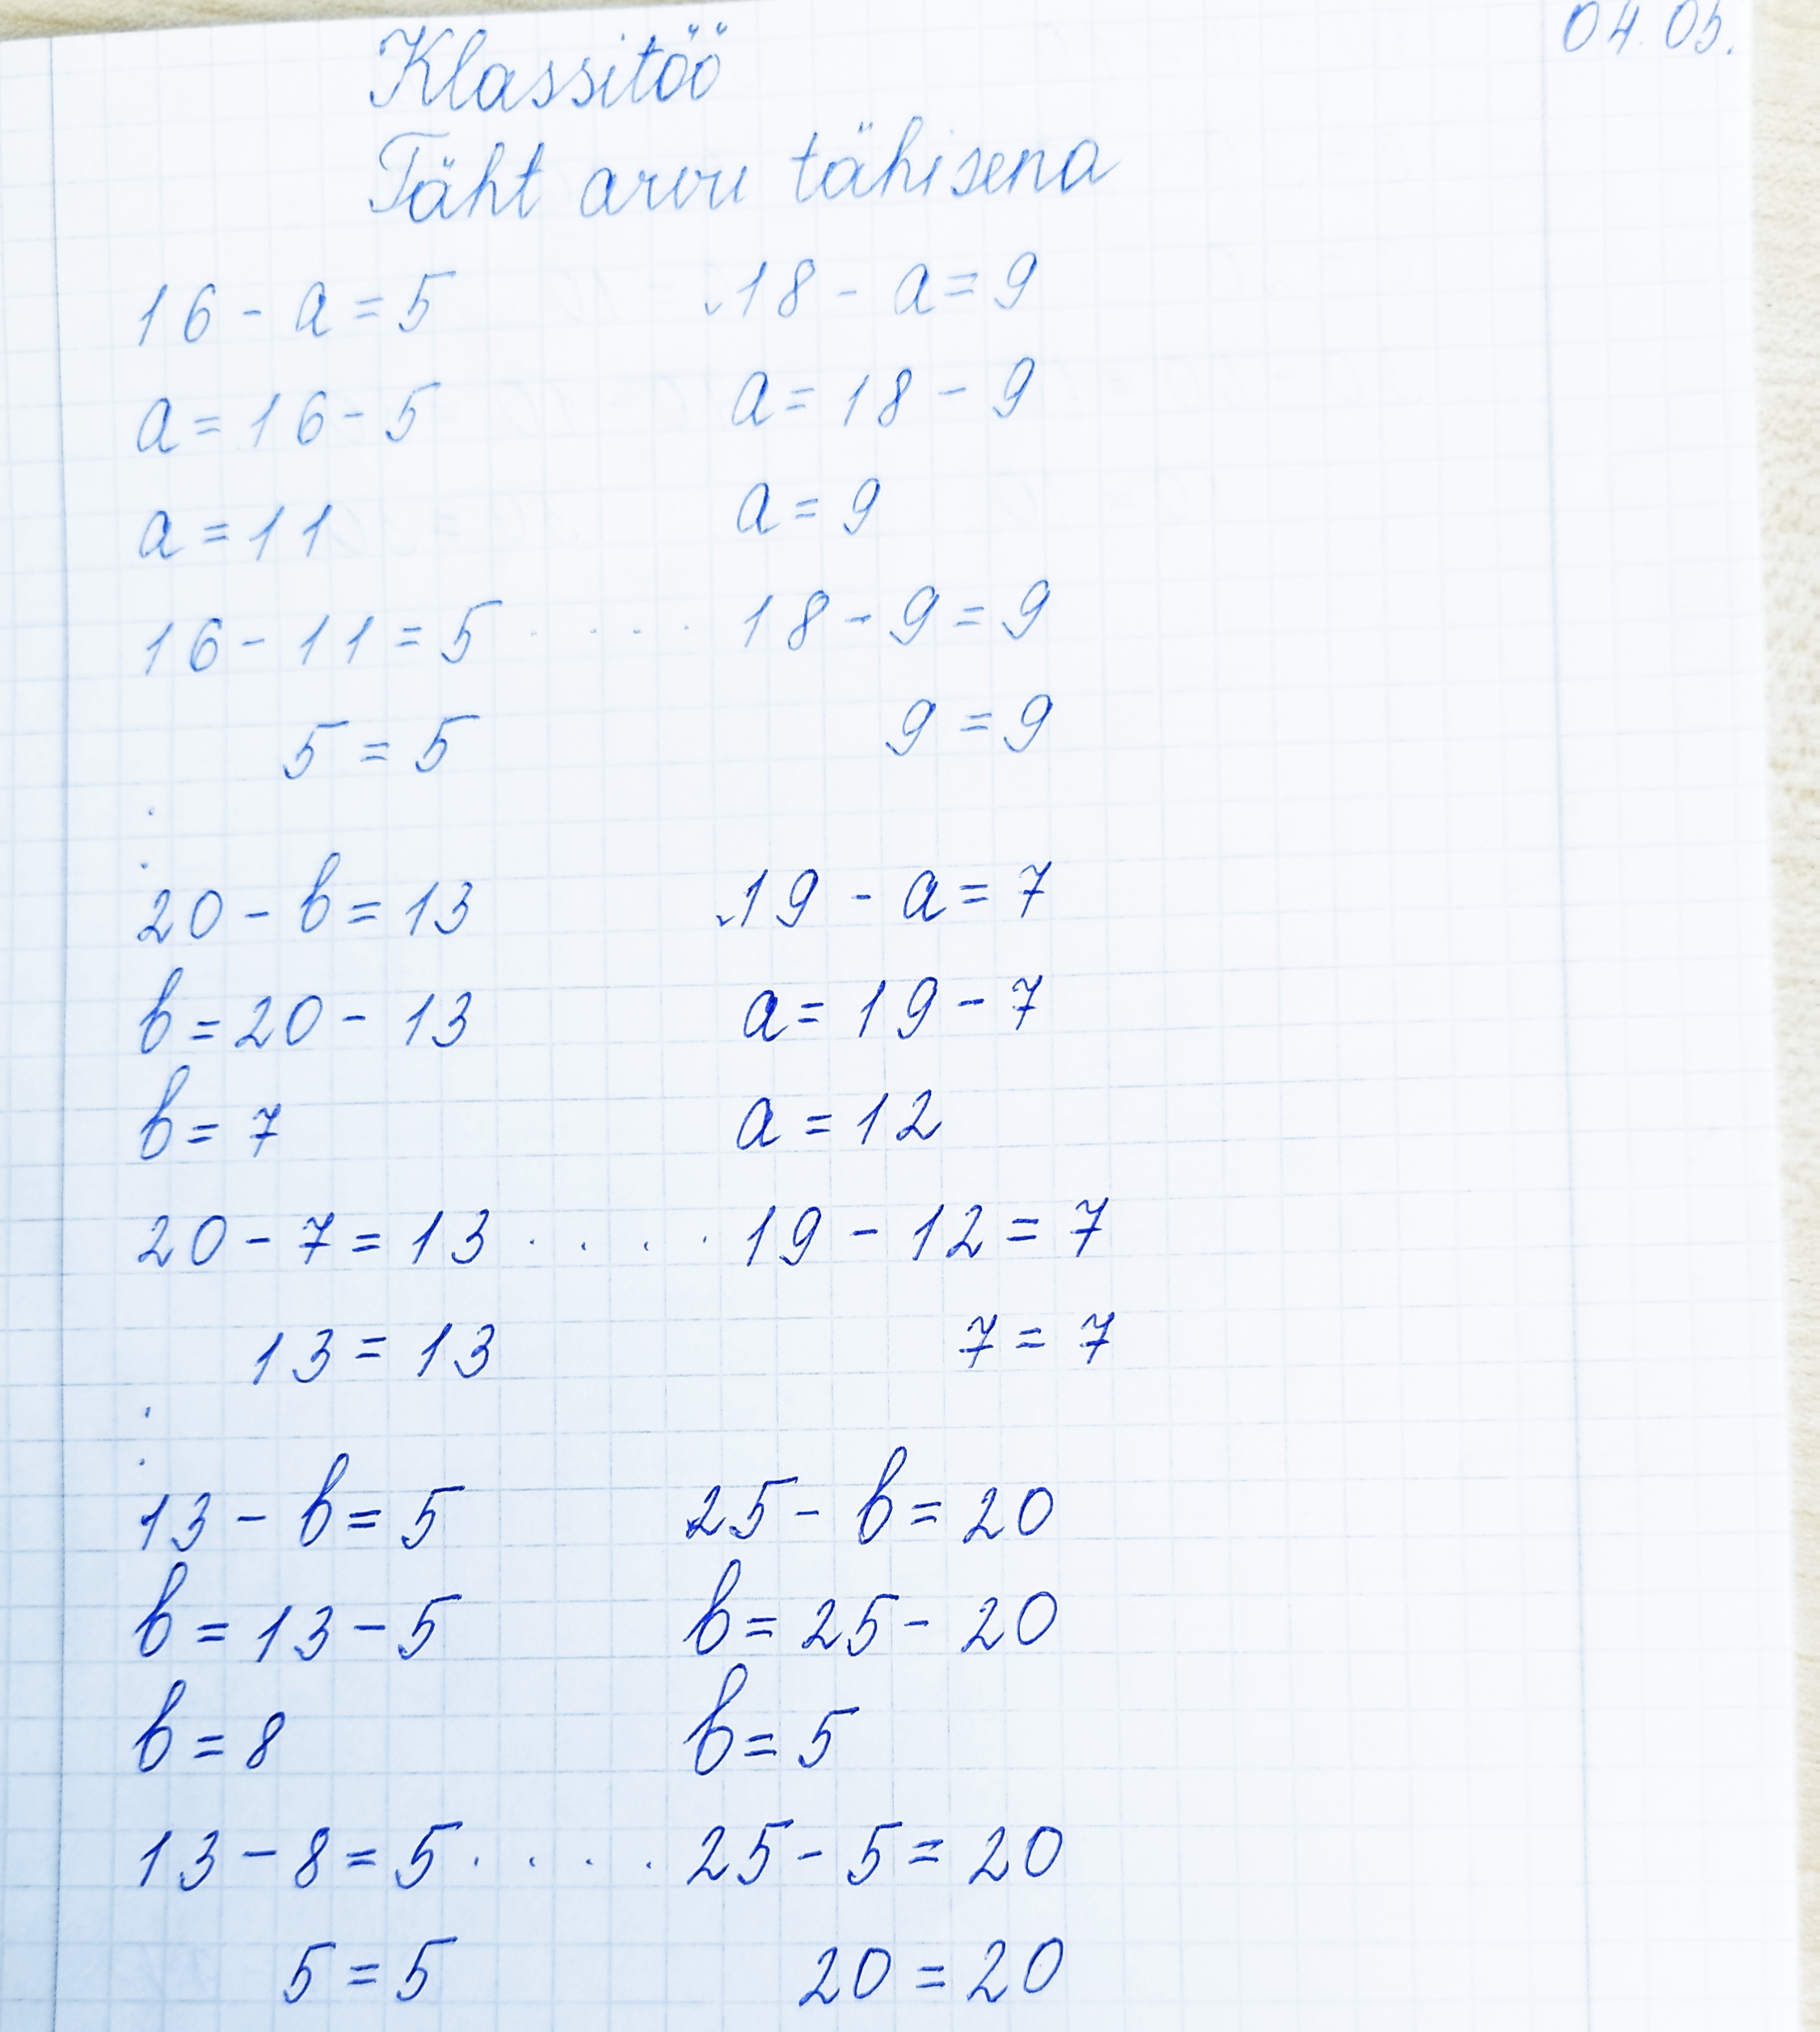 04.05.
Klassitöö
Täht arvu tähisena
16 - a = 5 18 - a = 9
a = 16 - 5 a = 18 - 9
a = 11 a = 9
16 - 11 = 5 . . . . 18 - 9 = 9
5 = 5 9 = 9
20 - b = 13 19 - a = 7
b = 20 - 13 a = 19 - 7
b = 7 a = 12
20 - 7 = 13 . . . . 19 - 12 = 7
13 = 13 7 = 7
13 - b = 5 25 - b = 20
b = 13 - 5 b = 25 - 20
b = 8 b = 5
13 - 8 = 5 . . . . 25 - 5 = 20
5 = 5 20 = 20